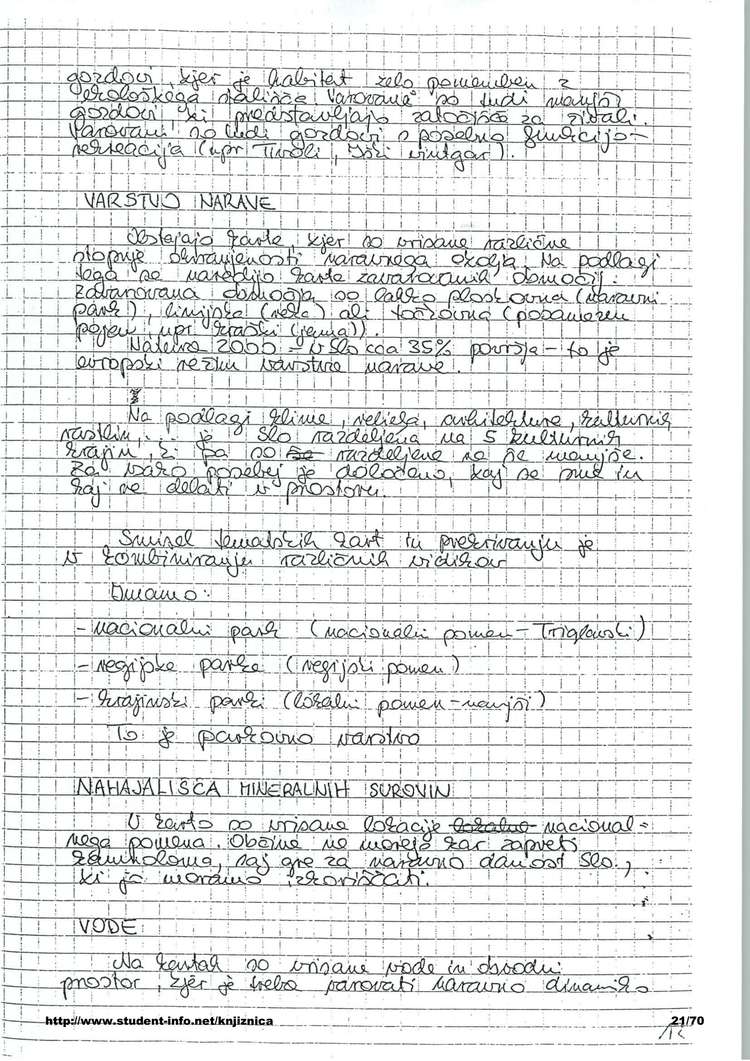 gozdovi, kjer je habitat zelo pomemben z
ekološkega stališča. Varovani so tudi manjši
gozdovi ki predstavljajo zatočišče za živali.
Varovani so tudi gozdovi s posebno funkcijo -
rekreacija (npr Tivoli, ).
VARSTVO NARAVE
Obstajajo karte, kjer so vrisane različne
stopnje ohranjenosti naravnega okolja. Na podlagi
tega se naredijo karte zavarovanih območij.
Zavarovana območja so lahko ploskovna (naravni
park), linijska (reka) ali točkovna (posamezen
pojav npr kraški (jama)).
Natura 2000 - v Slo cca 35% površja - to je
evropski režim varstva narave.
Na podlagi klime, reliefa, arhitekture, kulturnih
rastlin,... je Slo razdeljena na 5 kulturnih
krajin, ki pa so razdeljene na še manjše.
Za vsako posebej je določeno, kaj se sme in
kaj ne delati v prostoru.
Smisel tematskih kart in prekrivanju je
v kombiniranju različnih vidikov
Imamo:
- nacionalni park (nacionalni pomen - Triglavski)
- regijske parke (regijski pomen)
- krajinski parki (lokalni pomen - manjši)
To je parkovno varstvo
NAHAJALIŠČA MINERALNIH SUROVIN
V karto so vrisane lokacije lokalno nacional-
nega pomena. Občine ne morejo kar zapreti
kamnoloma, saj gre za naravno danost Slo,
ki jo moramo izkoriščati.
VODE
Na kartah so vrisane vode in obvodni
prostor, kjer je treba varovati naravno dinamiko
http://www.student-info.net/knjiznica
21/70